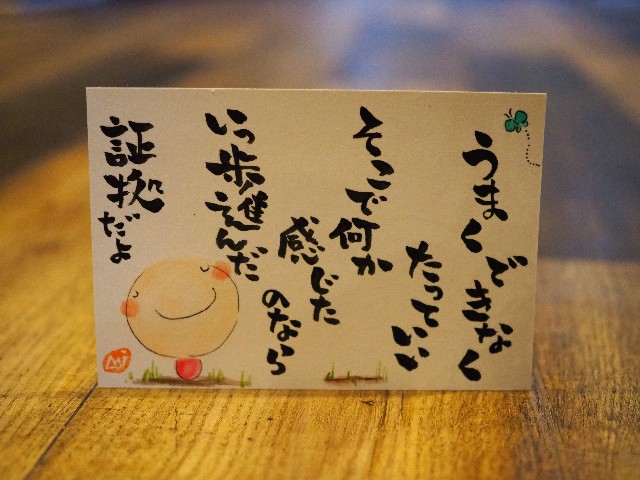 うまくできなく
たっていい
そこで何か
感じた
のなら
いっ歩進えんだ
証拠だよ
Mi